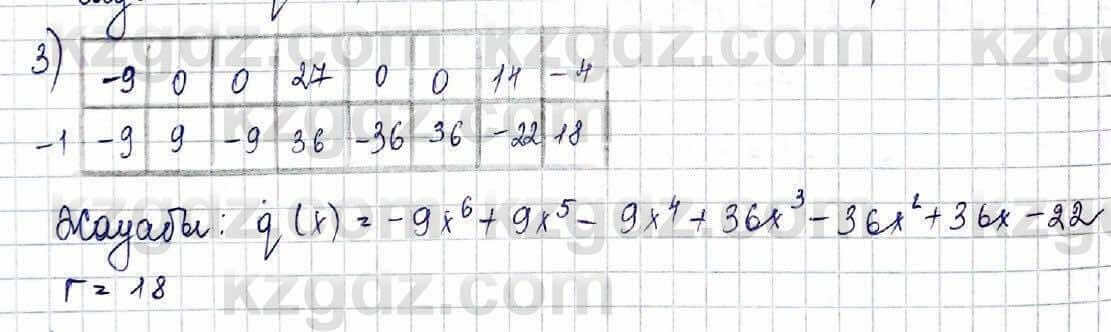 3) -9 0 0 27 0 0 14 -4
-1 -9 9 -9 36 -36 36 -22 18
Жауабы: q(x) = -9x⁶ + 9x⁵ - 9x⁴ + 36x³ - 36x² + 36x - 22
r = 18
kzgdz.com